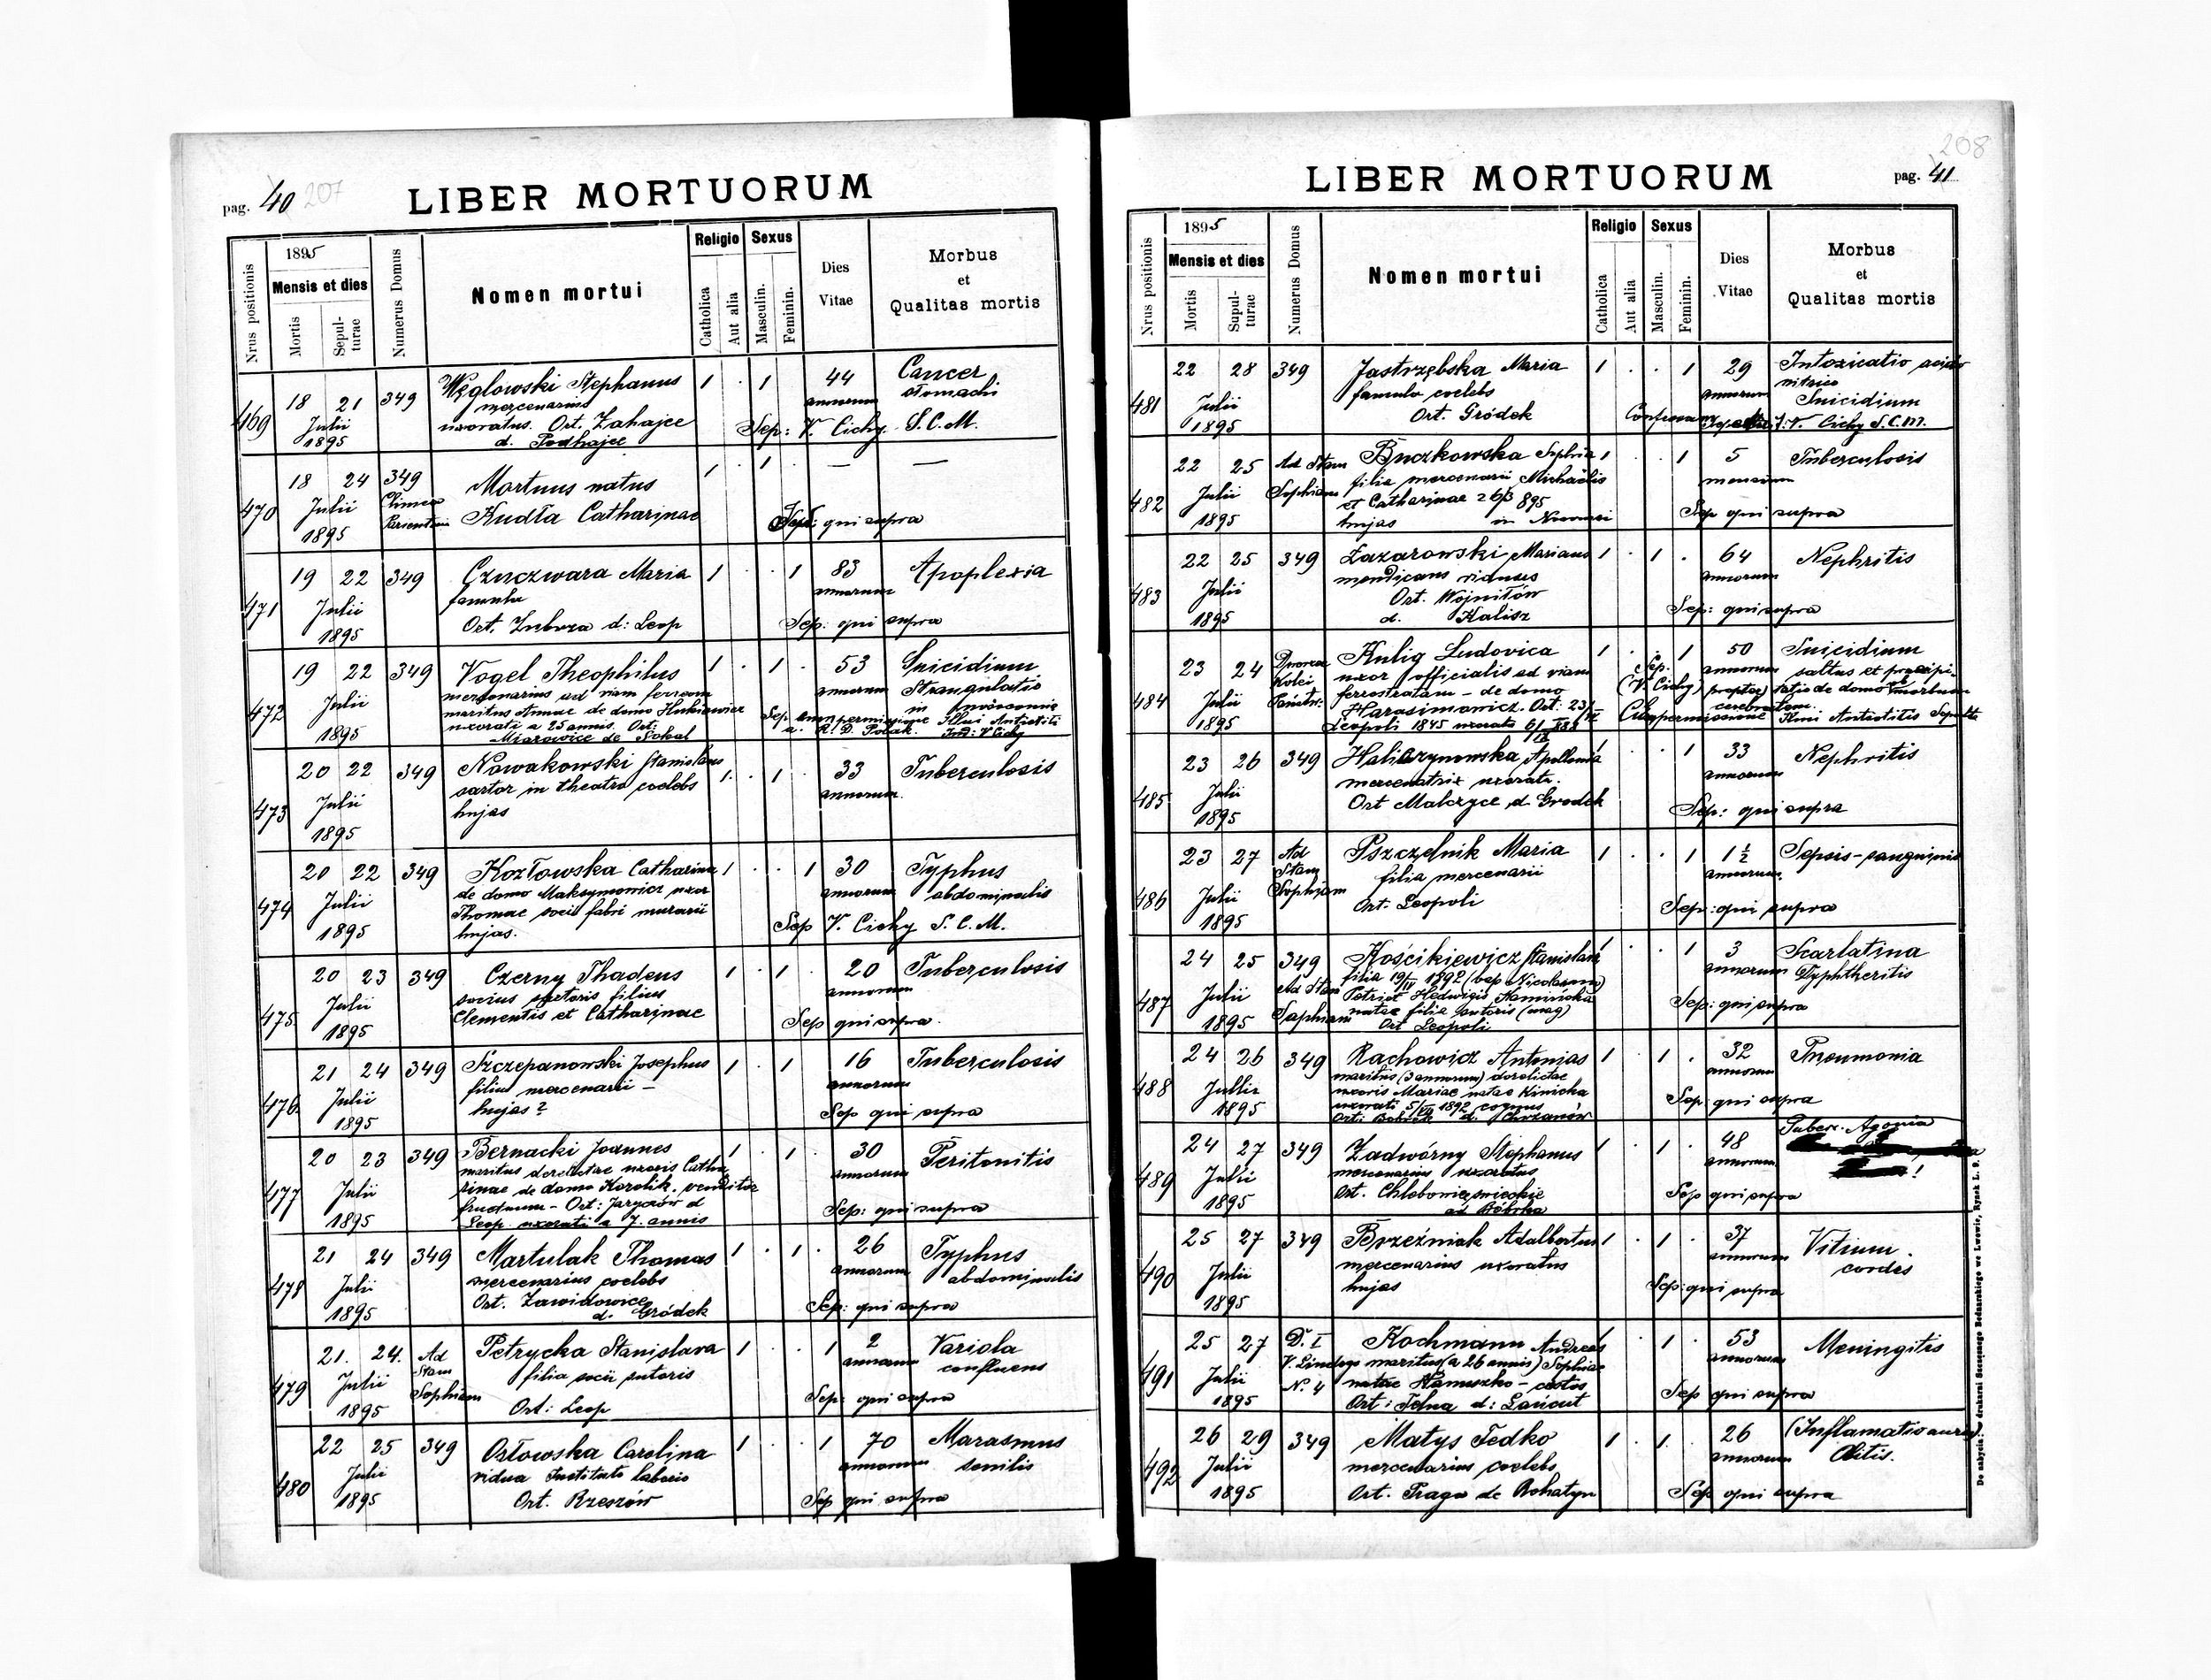 pag. 40 207
LIBER MORTUORUM
Nrus positionis
1895
Mensis et dies
Mortis
Sepulturae
Numerus Domus
Nomen mortui
Religio
Catholica
Aut alia
Sexus
Masculin.
Feminin.
Dies Vitae
Morbus et Qualitas mortis
469 18 21 349 Węglowski Stephanus 1 . 1 44 Cancer
Julii mercenarius annorum stomachi
1895 uxoratus. Ort. Zahajce Sep: V. Cichy S.C.M.
d. Podhajce
470 18 24 349 Mortuus natus 1 . 1 . — —
Julii
1895 Kudła Catharinae Sep: qui supra
471 19 22 349 Czuczwara Maria 1 . . 1 83 Apoplexia
Julii famula annorum
1895 Ort. Zubrza d: Leop Sep: qui supra
472 19 22 349 Vogel Theophilus 1 . 1 . 53 Suicidium
mercenarius ad viam ferream annorum Strangulatio
Julii maritus Annae de domo in
1895 uxorati a 25 annis. Ort:
de Sokal
473 20 22 349 Nowakowski Stanislaus 1 . 1 . 33 Tuberculosis
Julii sartor in theatro coelebs annorum.
1895 hujas
474 20 22 349 Kozłowska Catharina 1 . . 1 30 Typhus
de domo Maksymowicz uxor annorum abdominalis
Julii Thomae socii fabri murarii
1895 hujas. Sep V. Cichy S. C. M.
475 20 23 349 Czerny Thadeus 1 . 1 . 20 Tuberculosis
Julii socius filius annorum
1895 Clementis et Catharinae Sep qui supra.
476 21 24 349 Szczepanowski Josephus 1 . 1 16 Tuberculosis
Julii filius mercenarii — annorum
1895 hujas? Sep qui supra
477 20 23 349 Bernacki Joannes 1 . 1 . 30 Peritonitis
maritus derelictae uxoris Catha annorum
Julii rinae de domo Korolik. venditor
fructuum - Ort: Jaryczów d Sep: qui supra
1895 Leop. uxorati a 7. annis
478 21 24 349 Martulak Thomas 1 . 1 . 26 Typhus
Julii mercenarius coelebs annorum abdominalis
1895 Ort. Zawidowice Sep: qui supra
d. Gródek
479 21. 24. Ad Stam Sophiam Petrycka Stanislava 1 . . 1 2 Variola
Julii filia socii sutoris annorum confluens
1895 Ort: Leop Sep: qui supra
480 22 25 349 Orłowska Carolina 1 . . 1 70 Marasmus
Julii vidua Instituto laboris annorum senilis
1895 Ort. Rzeszów Sep qui supra
208
LIBER MORTUORUM
pag. 41
Nrus positionis
1895
Mensis et dies
Mortis
Supulturae
Numerus Domus
Nomen mortui
Religio
Catholica
Aut alia
Sexus
Masculin.
Feminin.
Dies Vitae
Morbus et Qualitas mortis
481 22 28 349 Jastrzębska Maria 1 . . 1 29 Intoxicatio acido
famula coelebs annorum nitrico
Julii Suicidium
1895 Ort. Gródek V. Cichy S.C.M.
482 22 25 Ad Stam Sophiam Buczkowska Sophia 1 . . 1 5 Tuberculosis
Julii filia mercenarii Michaëlis mensium
et Catharinae 26/3 895
1895 hujas in Sep qui supra
483 22 25 349 Łazarowski Marianus 1 . 1 . 64 Nephritis
mendicans annorum
Julii Ort. Wojniłów
1895 d. Kalisz Sep: qui supra
484 23 24 Kulig Ludovica 1 . . 1 50 Suicidium
uxor officialis ad viam Sep. annorum saltus et praecipi-
Julii ferrostratam - de domo (V. Cichy) propter tatio de domo morbum
Harasimowicz. Ort: 23/ cerebralem.
1895 Leopoli 1845 uxorata Cum permissione Antistitis Sepulta
485 23 26 349 Apollonia 1 . . 1 33 Nephritis
Julii mercenatrix uxorata. annorum
1895 Ort Malczyce d. Grodek Sep: qui supra
486 23 27 Ad Stam Sophiam Pszczelnik Maria 1 . . 1 1½ Sepsis-sanguinis
Julii filia mercenarii annorum.
1895 Ort. Leopoli Sep: qui supra
487 24 25 349 Kościkiewicz Stanislava 1 . . 1 3 Scarlatina
Ad Stam filia 19/IV 1892 (bap Nicolaum) annorum Dyphtheritis
Julii Petri et Hedwigis Kamińska
Sophiam natae filia sutoris (mag) Sep: qui supra
1895 Ort Leopoli
488 24 26 349 Rachowicz Antonius 1 . 1 . 32 Pneumonia
maritus (3 annorum) derelictae annorum
Julii uxoris Mariae natae Kinicka
1895 uxorati 5/VII 1892 coquus Sep: qui supra
Ort: d. Chrzanów
489 24 27 349 Zadwórny Stephanus 1 . 1 . 48 Tuberc. Agonia
Julii mercenarius uxoratus annorum
1895 Ort. Sep qui supra
ad Bóbrka
490 25 27 349 Brzeźniak Adalbertus 1 . 1 . 37 Vitium
Julii mercenarius uxoratus annorum cordis
1895 hujas Sep: qui supra
491 25 27 D. I Kochmann Andreas 1 . 1 . 53 Meningitis
N. 4 maritus (a 26 annis) Sophiae annorum
Julii natae Hanuszko - custos
1895 Ort: Felna d: Łańcut Sep qui supra
492 26 29 349 Matys Fedko 1 . 1. 26 (Inflamatio auris)
Julii mercenarius coelebs annorum Otitis.
1895 Ort. Fraga de Rohatyn Sep qui supra
Do nabycia w drukarni Szczęsnego Bednarskiego we Lwowie, Rynek L. 9.